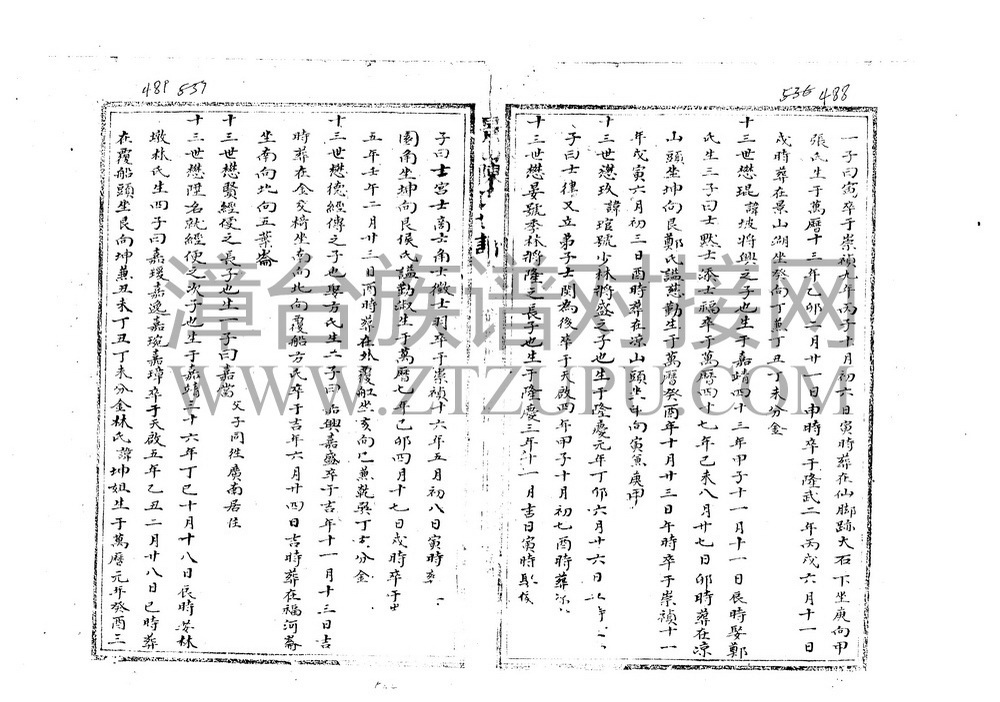 536 488
一子曰寃卒于崇禎九年丙子十月初六日寅時葬在仙腳跡大石下坐庚向甲
張氏生于萬曆十三年乙卯二月廿一日申時卒于隆武二年丙戌六月十一日
戌時葬在景山湖坐癸向丁兼丁丑丁未分金
十三世懋琨諱坡將興之子也生于嘉靖四十三年甲子十一月十一日辰時娶鄭
氏生三子曰士默士添士福卒于萬曆四十七年己未八月廿七日卯時葬在凉
山頭坐坤向艮鄭氏謚慈勤生于萬曆癸酉年十月廿三日午時卒于崇禎十一
年戊寅六月初三日酉時葬在凉山頭坐申向寅兼庚甲
十三世懋玖諱琯號少林將盛之子也生于隆慶元年丁卯六月廿六日
子曰士律又立弟子士閔為後卒于天啟四年甲子十月初七酉時葬
十三世懋晏號季林將隆之長子也生于隆慶三年十一月吉日寅時娶侯
489 537
子曰士宮士商士南士徵士羽卒于崇禎十六年五月初八日寅時
園角坐坤向艮侯氏謚勤淑生于萬曆七年己卯四月十七日戌時卒于
五年壬年二月廿三日酉時葬在外覆船坐亥向巳兼乾巽丁亥分金
十三世懋德經傳之子也娶方氏生二子曰興嘉盛卒于吉年十一月十三日吉
時葬在金交椅坐南向北向覆船方氏卒于吉年六月廿四日吉時葬在福河崙
坐南向北向五葉崙
十三世懋賢經優之長子也生一子曰嘉當 父子同徃廣南居住
十三世懋陞名就經便之次子也生于嘉靖三十六年丁巳十月十八日辰時娶林
墩林氏生四子曰嘉瑷嘉逸嘉琬嘉璋卒于天啟五年乙丑二月廿八日巳時葬
在覆船頭坐艮向坤兼丑未丁丑丁未分金林氏諱坤姐生于萬曆元年癸酉三
漳台族谱对接网
WWW.ZTZUPU.COM